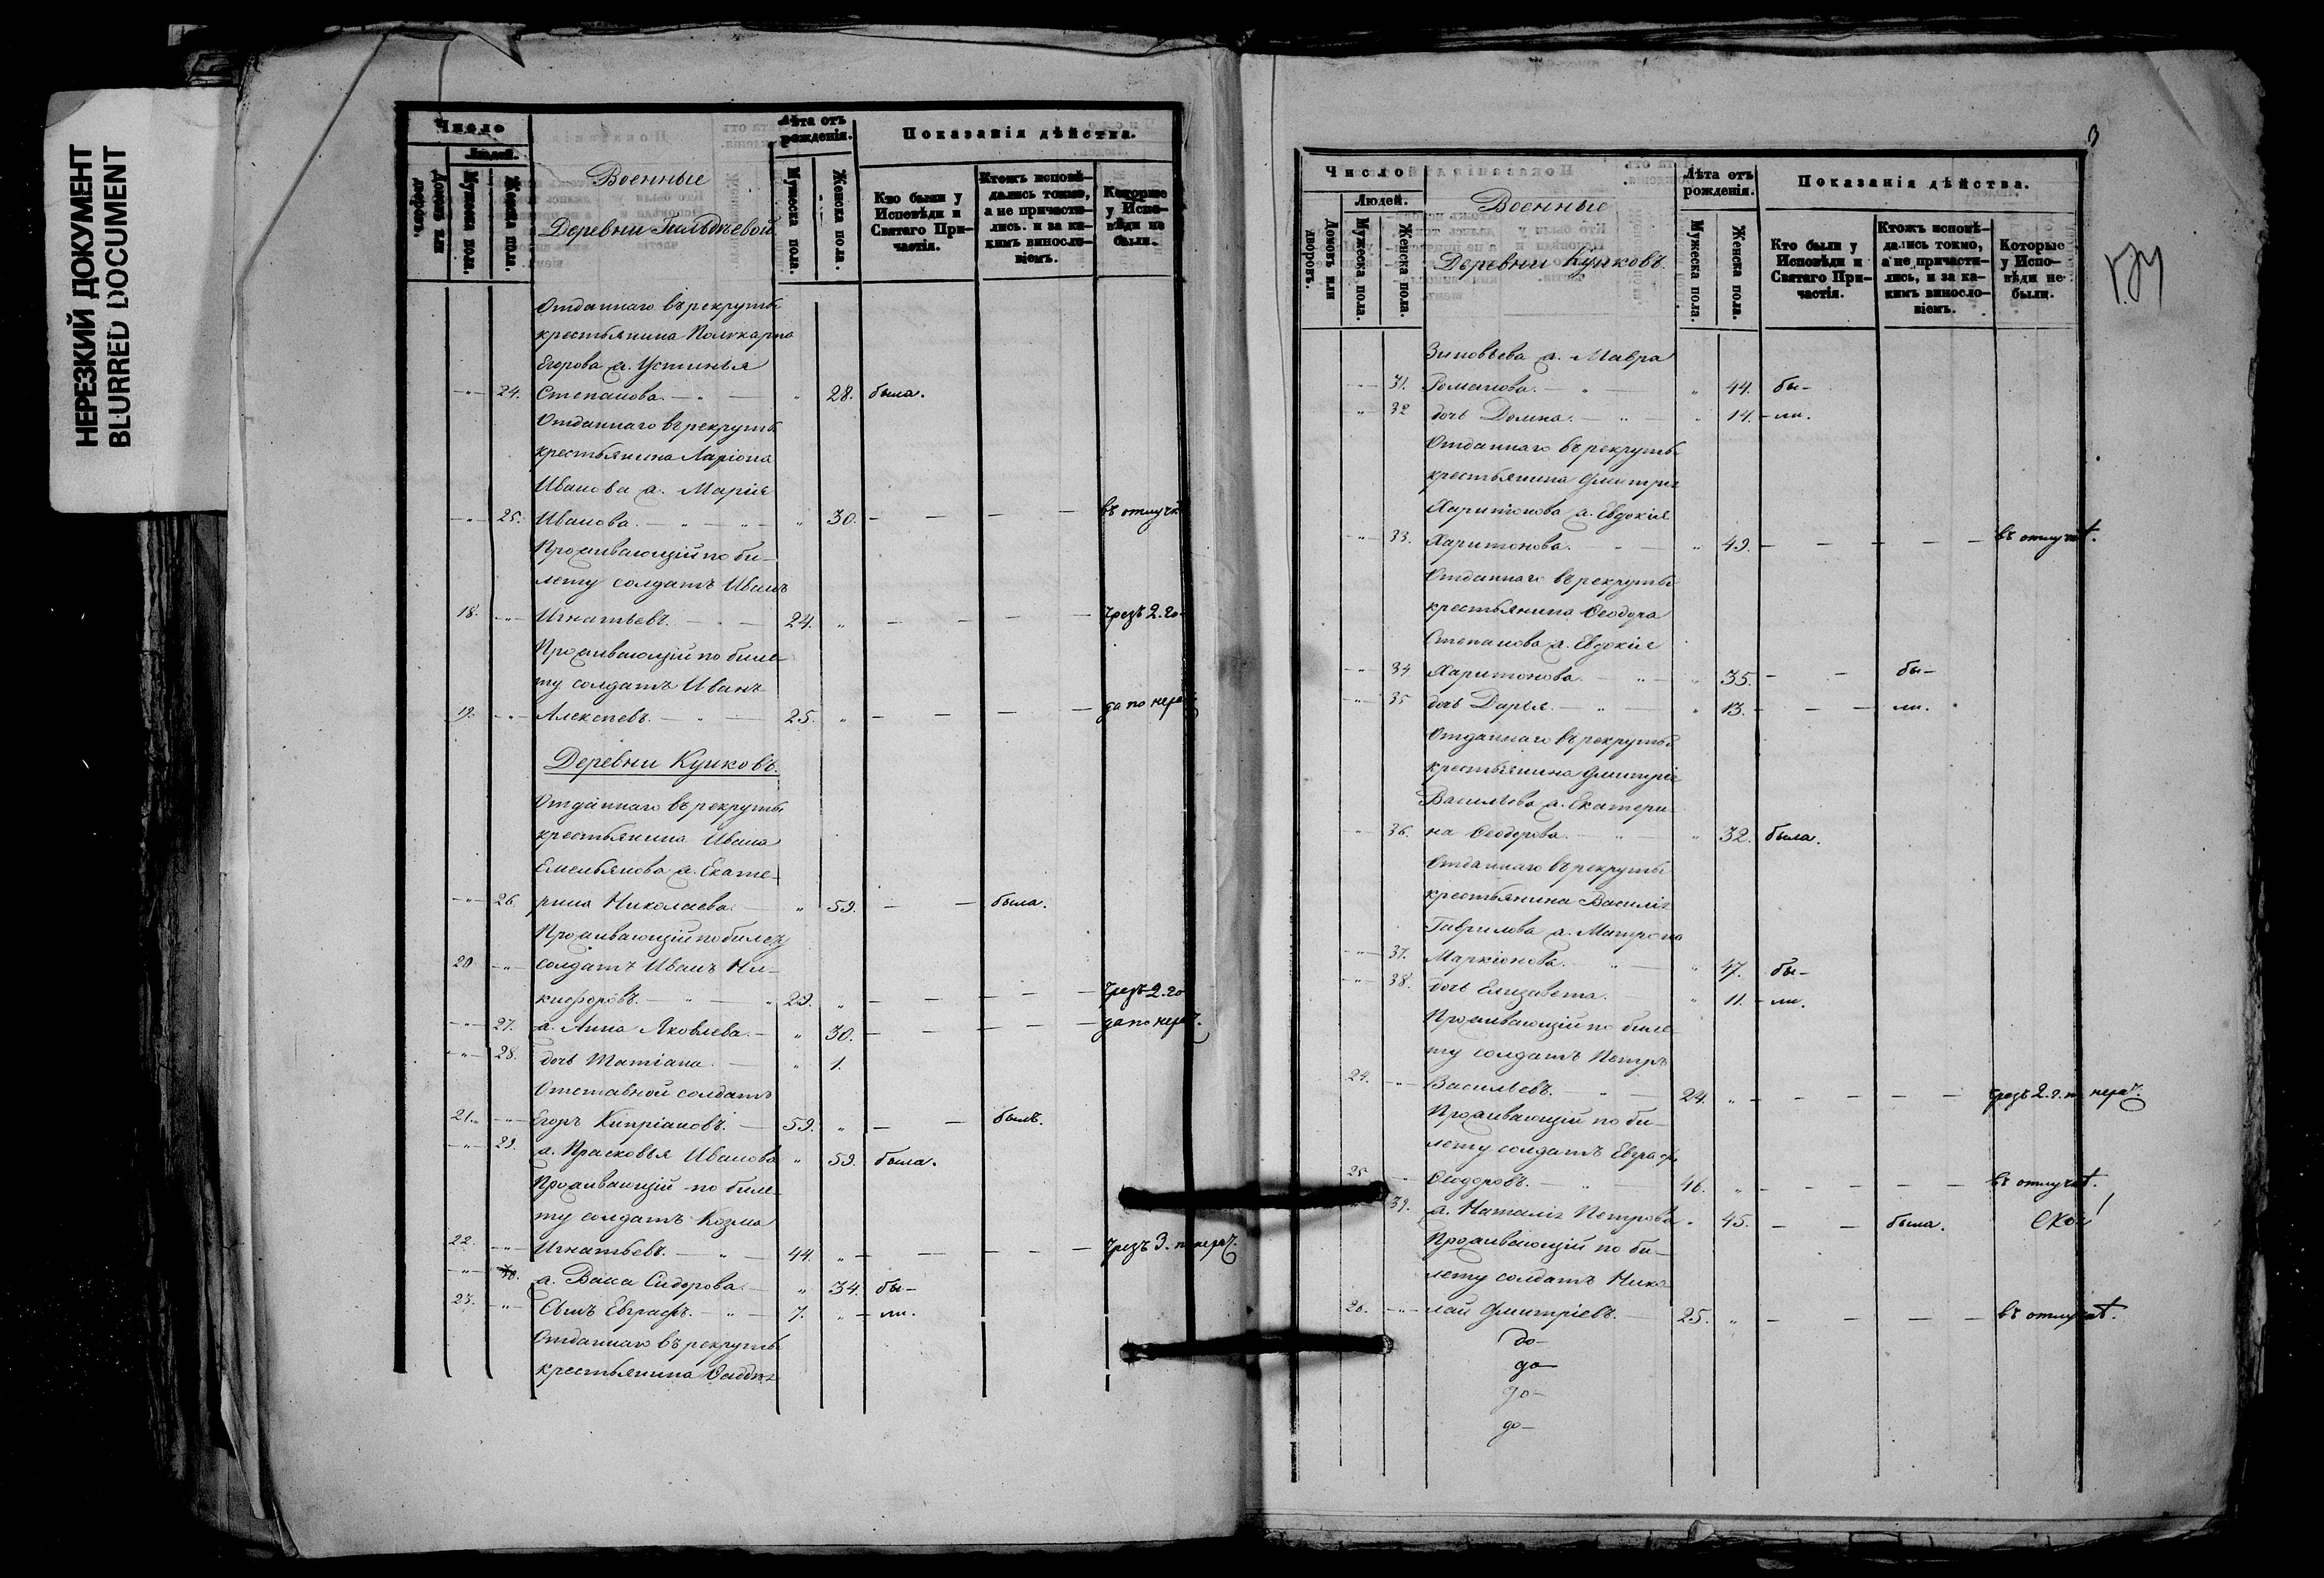 НЕРЕЗКИЙ ДОКУМЕНТ
BLURRED DOCUMENT
Число
Людей.
Домовъ или дворовъ.
Мужеска пола.
Женска пола.
Военные
Деревни
Лѣта отъ рожденія.
Мужеска пола.
Женска пола.
Показанія дѣйства.
Кто были у Исповѣди и Святаго Причастія.
Ктожъ исповѣдались токмо, а не причастились, и за какимъ винословіемъ.
Которые у Исповѣди не были.
Отданнаго въ рекруты
крестьянина Поликарпа
Егорова ж. Устинья
-"- 24. Степанова. - " - " 28. была.
Отданнаго въ рекруты
крестьянина Ларіона
Иванова ж. Марія
-"- 25. Иванова. - " - " - " 30. - - - - въ отлучкѣ
Проживающій по би-
лету солдатъ Иванъ
18. -"- Игнатьевъ. - " - 24. " - - - - чрезъ 2. го-
Проживающій по биле-
ту солдатъ Иванъ
19. -"- Алексѣевъ. - " - 25. " - - - - да по нерад.
Деревни Куиковъ.
Отданнаго въ рекруты
крестьянина Ивана
Емельянова ж. Екате-
-"- 26. рина Николаева. - " 59. - - была.
Проживающій по билету
20 -"- солдатъ Иванъ Ни-
кифоровъ. - " - " 29. " - - - - чрезъ 2. го
-"- 27. ж. Анна Яковлева. - " 30. - - - - да по нерад.
-"- 28. дочь Татіана. - " 1.
Отставной солдатъ
21. -"- Егоръ Кипріановъ. - 59. " - - былъ.
-"- 29. ж. Прасковья Иванова " 59. была.
Проживающій по биле-
ту солдатъ Козма
22. -"- Игнатьевъ. - " - 44. " - - - - чрезъ 3. г. по нерад.
-"- 30. ж. Васса Сидорова. - " 34. бы-
23. -"- Сынъ Евграфъ. - " - 7. " - ли.
Отданнаго въ рекруты
крестьянина
3
Число
Людей.
Домовъ или дворовъ.
Мужеска пола.
Женска пола.
Военные
Деревни Куиковъ.
Лѣта отъ рожденія.
Мужеска пола.
Женска пола.
Показанія дѣйства.
Кто были у Исповѣди и Святаго Причастія.
Ктожъ исповѣдались токмо, а не причастились, и за какимъ винословіемъ.
Которые у Исповѣди не были.
Зиновьева ж. Мавра
-"- 31. Романова. - " - " 44. бы-
" 32 дочь Домна. - " - " 14. - ли.
Отданнаго въ рекруты
крестьянина Дмитрія
Харитонова ж. Евдокія
-"- 33. Харитонова. - " - " 49. - - - - - въ отлучкѣ.
Отданнаго въ рекруты
крестьянина Ѳеодора
Степанова ж. Евдокія
-"- 34 Харитонова. - " - " 35. - - бы-
-"- 35 дочь Дарья. - " - " 13. - - ли.
Отданнаго въ рекруты
крестьянина Дмитрія
Васильева ж. Екатери-
-"- 36. на Ѳеодорова. - " - " 32. была.
Отданнаго въ рекруты
крестьянина Василія
Гаврилова ж. Матрона
-"- 37. Маркіонова. - " - " 47. бы-
-"- 38. дочь Елизавета. - " 11. - ли.
Проживающій по биле-
ту солдатъ Петръ
24. -"- Васильевъ. - " - 24. " - - - - - чрезъ 2. г. по нерад.
Проживающій по би-
лету солдатъ Евграфъ
25. " Ѳеодоровъ. - " - 46. " - - - - - въ отлучкѣ.
39. ж. Наталія Петрова " 45. - - была.
Проживающій по би-
лету солдатъ Нико-
26. -"- лай Дмитріевъ. - 25. " - - - - въ отлучкѣ.
до-
до-
до-
до-